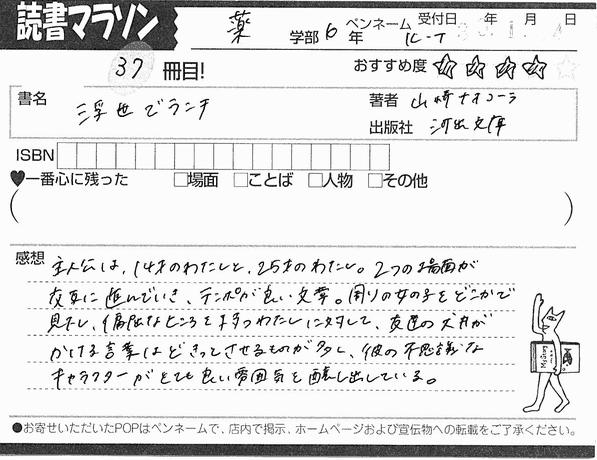 読書マラソン
薬 学部 6 年 ペンネーム K-T 受付日 年 月 日
37 冊目! おすすめ度
書名 浮世でランチ 著者 山崎ナオコーラ
出版社 河出文庫
ISBN
♥一番心に残った □場面 □ことば □人物 □その他
感想 主人公は、14才のわたしと、25才のわたし。2つの場面が
交互に進んでいき、テンポが良い文章。周りの女の子をどこかで
見下し、偏屈なところを持つわたしに対して、友達の犬井が
かける言葉はどきっとさせるものが多く、彼の不思議な
キャラクターがとても良い雰囲気を醸し出している。
Mystery
●お寄せいただいたPOPはペンネームで、店内で掲示、ホームページおよび宣伝物への転載をご了承ください。